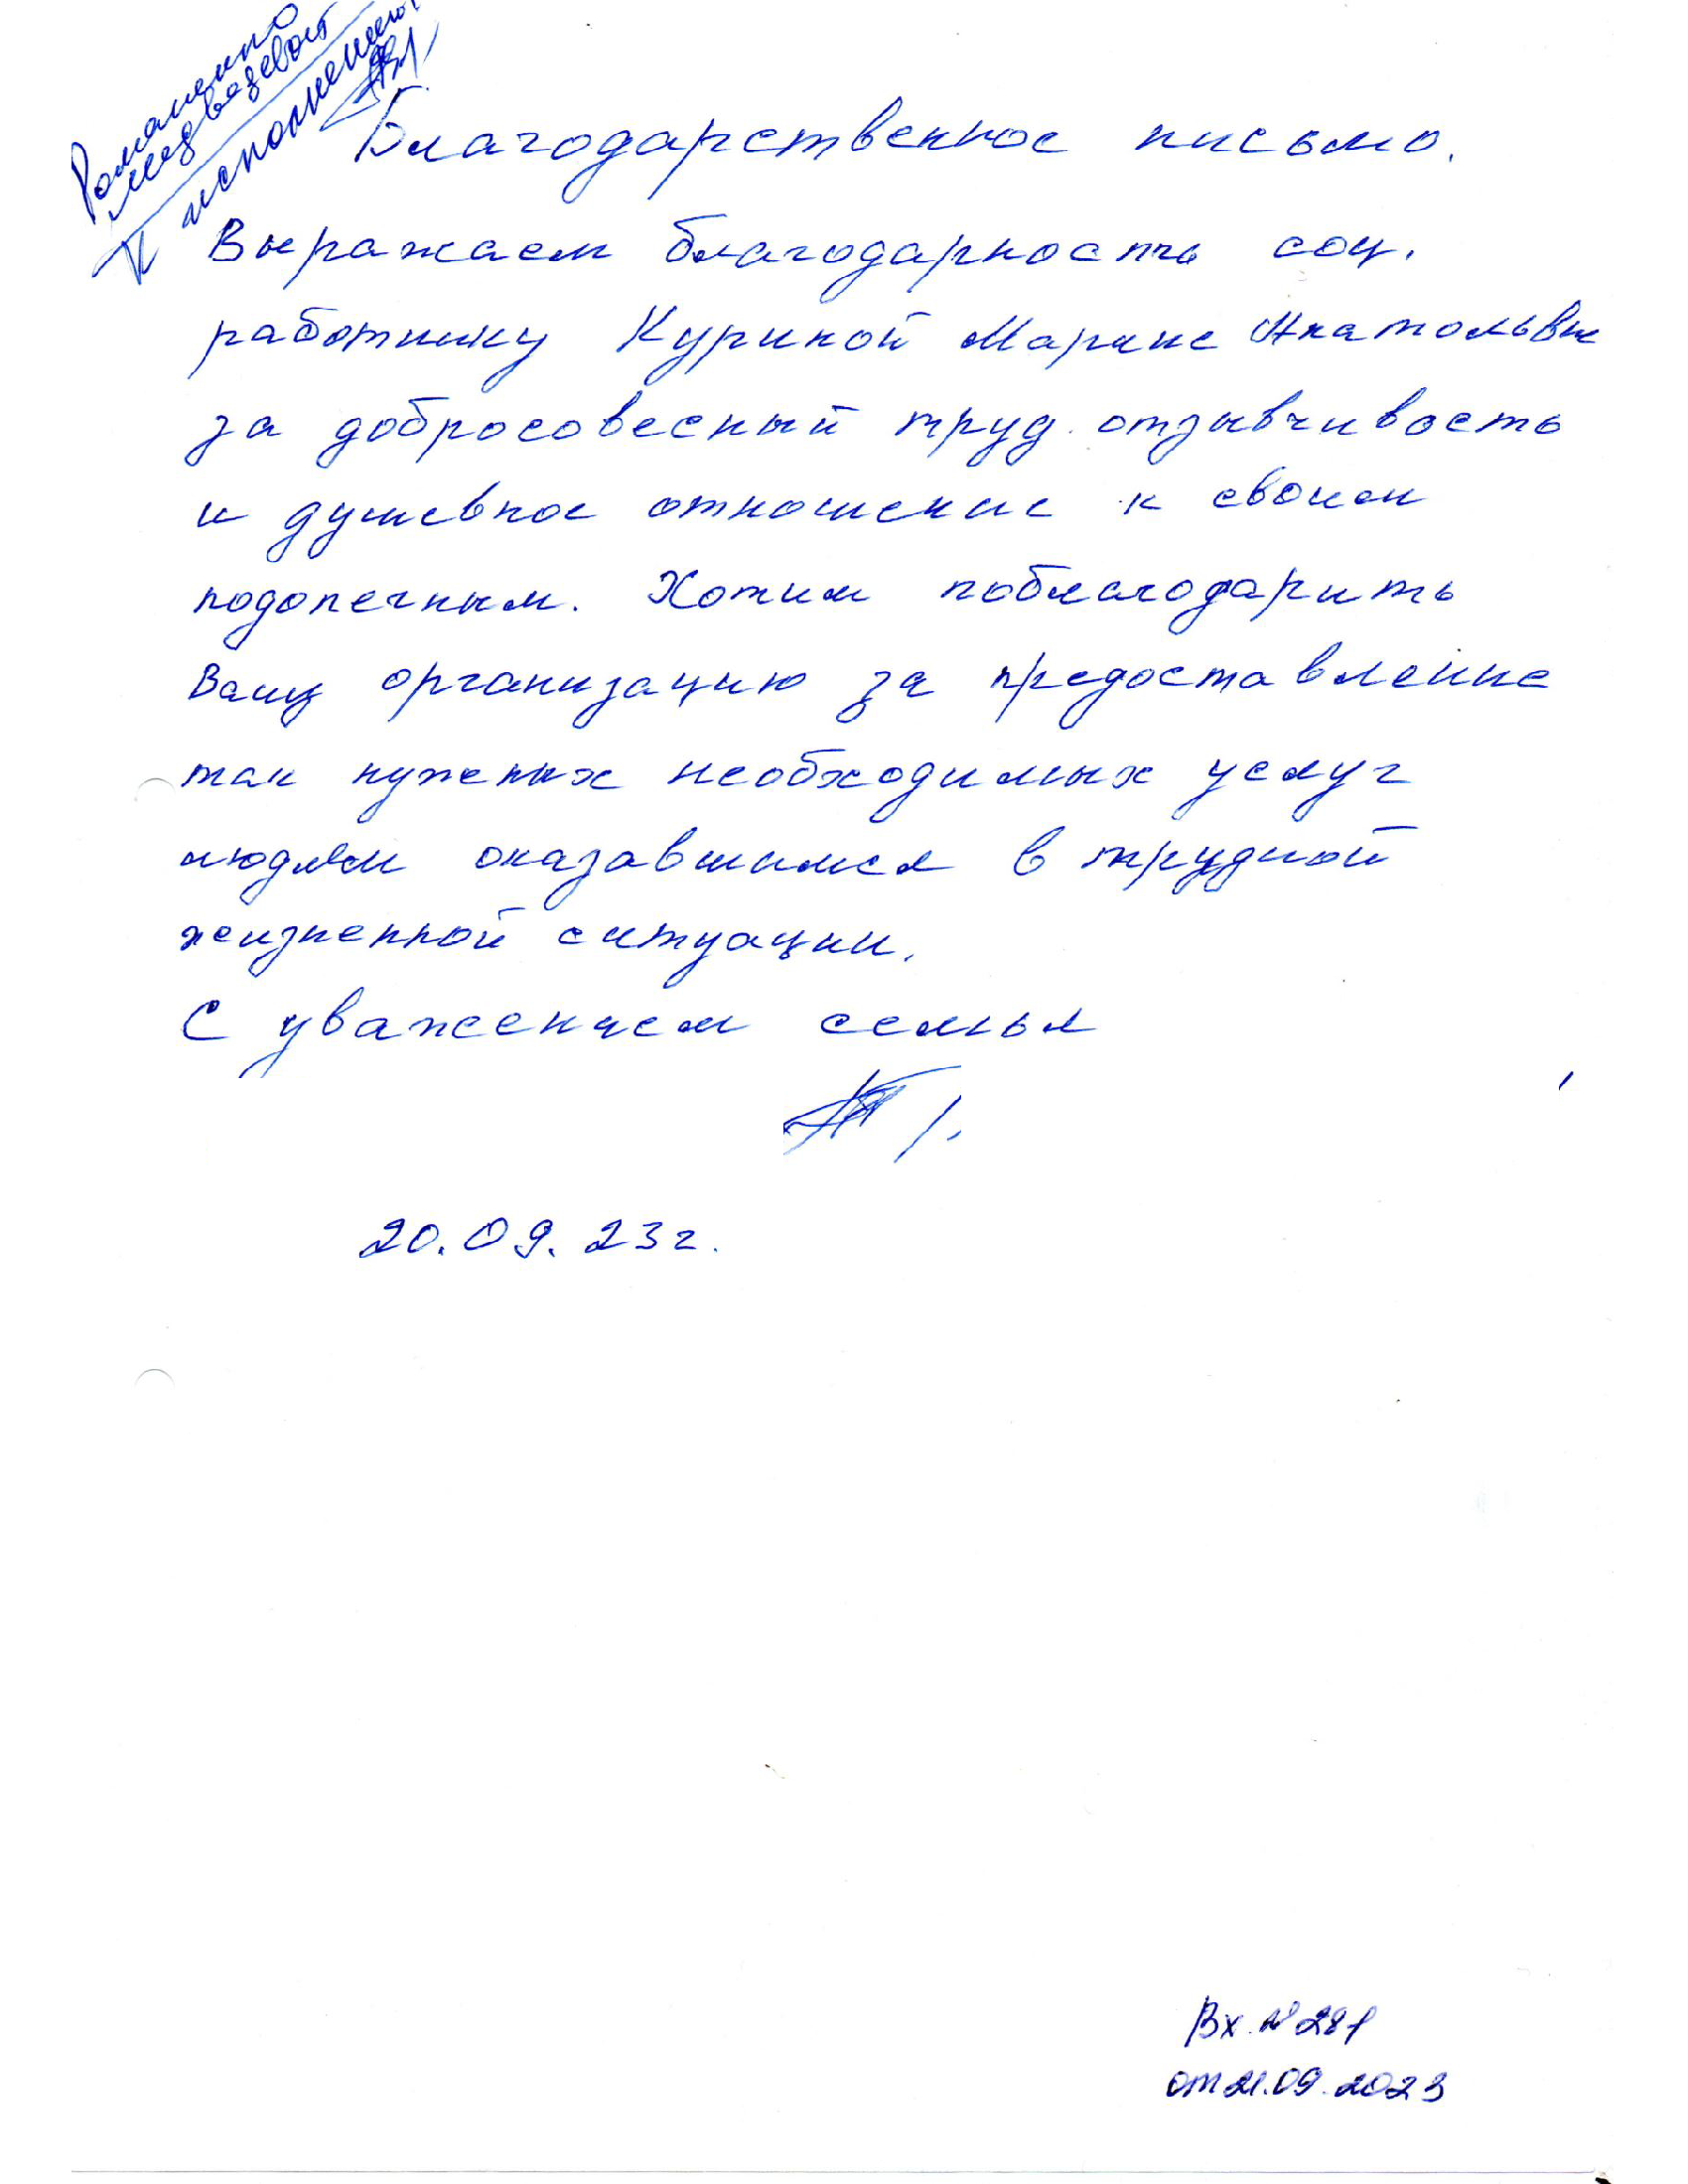 Романенко
Медведевой
К исполнению
Благодарственное письмо.
Выражаем благодарность соц.
работнику Куриной Марине Анатольвне
за добросовесный труд. отзывчивость
и душевное отношение к своим
подопечным. Хотим поблагодарить
Вашу организацию за предоставление
так нуженых необходимых услуг
людям оказавшимся в трудной
жизненной ситуации.
С уважением семья
20.09.23г.
Вх. № 281
от 21.09.2023